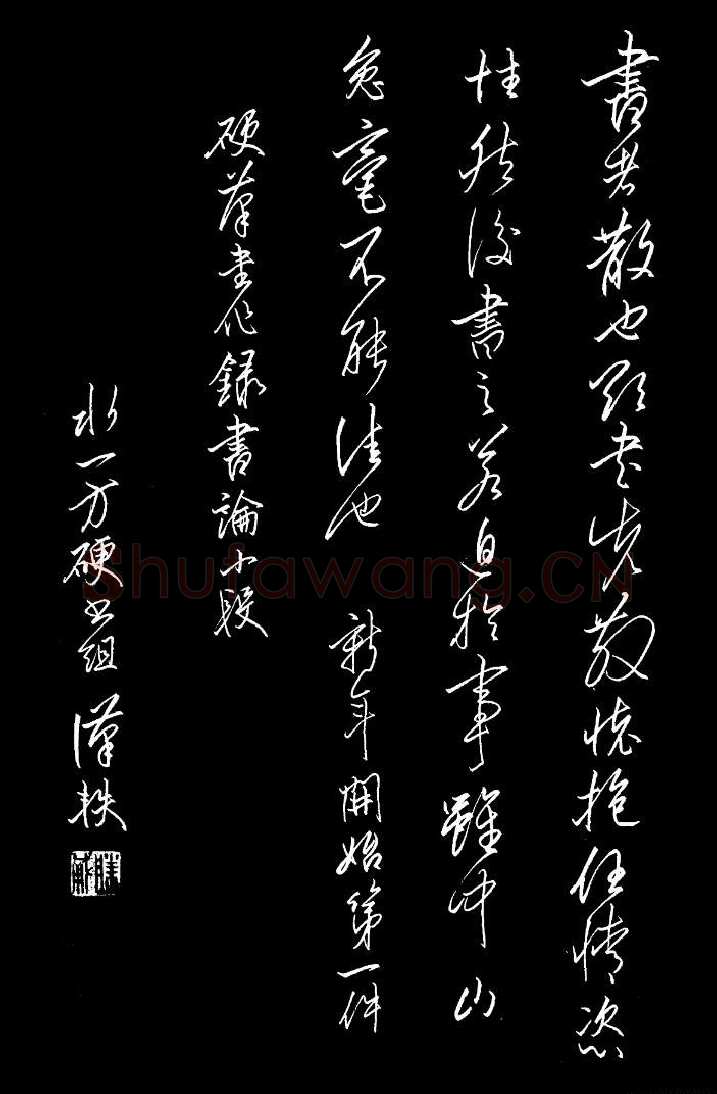 書者散也欲書先散懷抱任情恣
性然後書之若迫於事雖中山
兔毫不能佳也 新年開始第一件
硬筆書作錄書論小段
水一方硬書組漢軼
Shufawang.CN